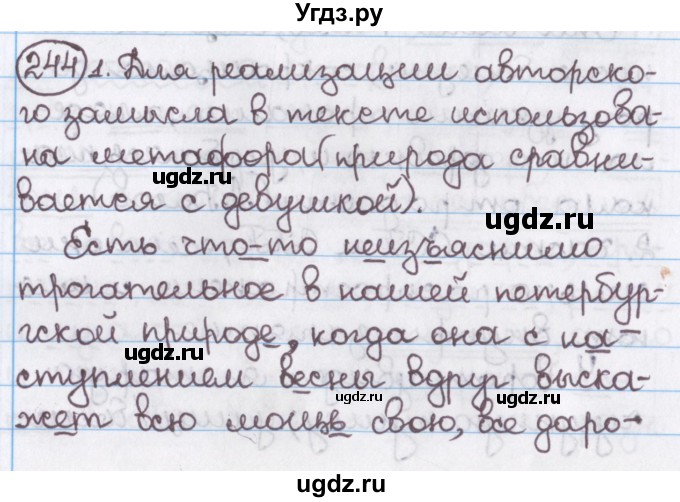 Угдз.ру
244 1. Для реализации авторско-
го замысла в тексте использова-
на метафора (природа сравни-
ugdz.ru
вается с девушкой).
ugdz.ru
Есть что-то неизъяснимо
ugdz.ru
трогательное в нашей петербур-
гской природе, когда она с на-
ugdz.ru
ступлением весны вдруг выска-
ugdz.ru
жет всю мощь свою, все даро-
ugdz.ru